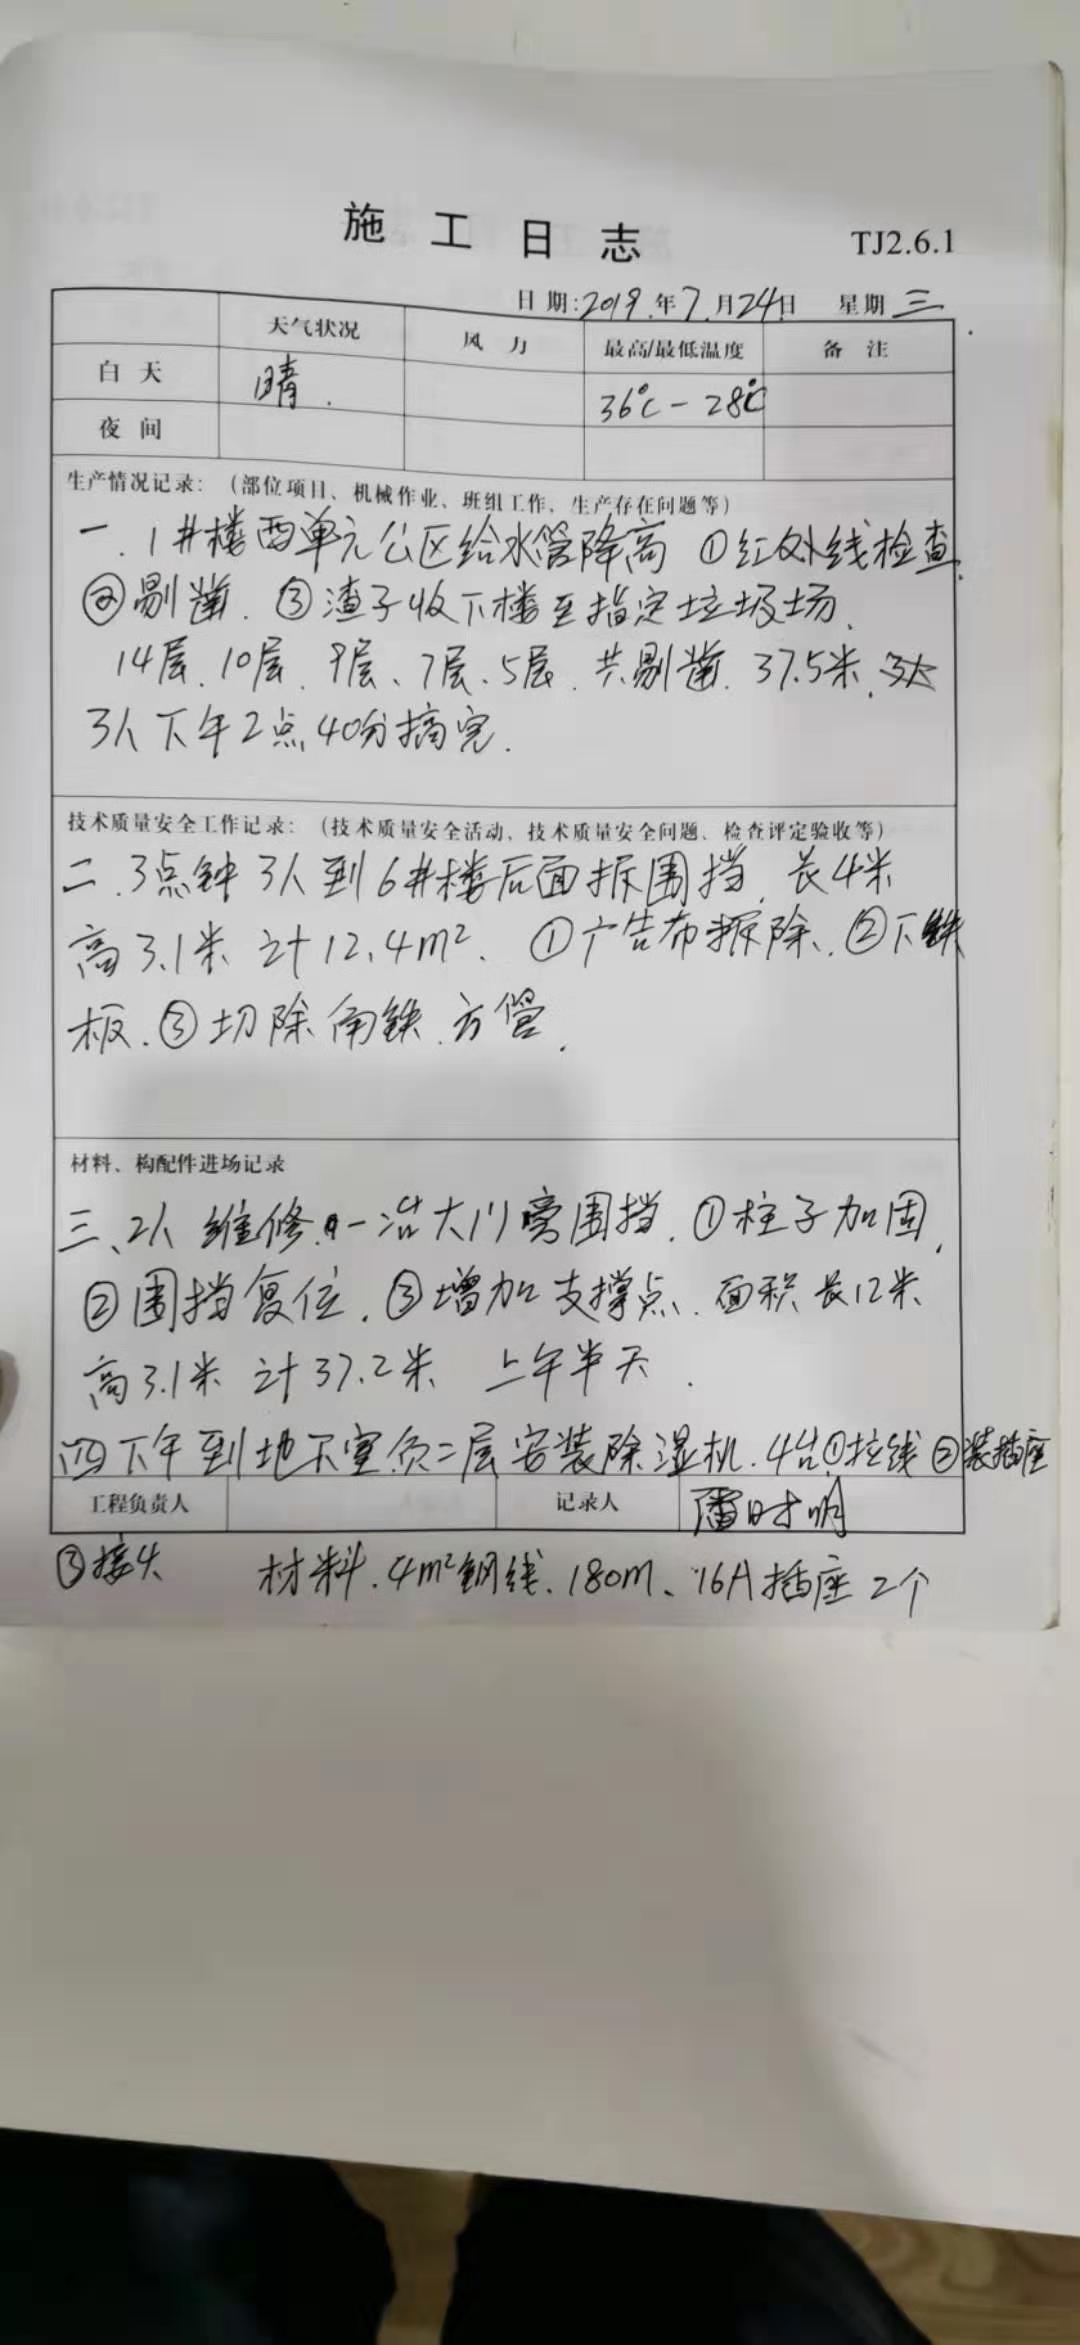 施工日志
TJ2.6.1
日期:2019.年7.月24日 星期三
天气状况 风力 最高/最低温度 备注
白天 晴. 36℃-28℃
夜间
生产情况记录:(部位项目、机械作业、班组工作、生产存在问题等)
一.1井楼西单元公区给水管降高 ①红外线检查.
②剔凿.③渣子收下楼至指定垃圾场.
14层、10层、9层、7层、5层.共剔凿.37.5米.
3人下午2点40分搞完.
技术质量安全工作记录:(技术质量安全活动、技术质量安全问题、检查评定验收等)
二.3点钟3人到6井楼后面拆围挡.长4米
高3.1米 计12.4m².①广告布拆除、②下铁
板.③切除角铁.方管.
材料、构配件进场记录
三、2人维修 一浩大川旁围挡.①柱子加固.
②围挡复位.③增加支撑点.面积长12米
高3.1米 计37.2米 上午半天.
四下午到地下室负二层安装除湿机.4台①拉线②装插座
工程负责人 记录人 潘时明
③接头 材料.4m²铜线.180m、16A插座2个